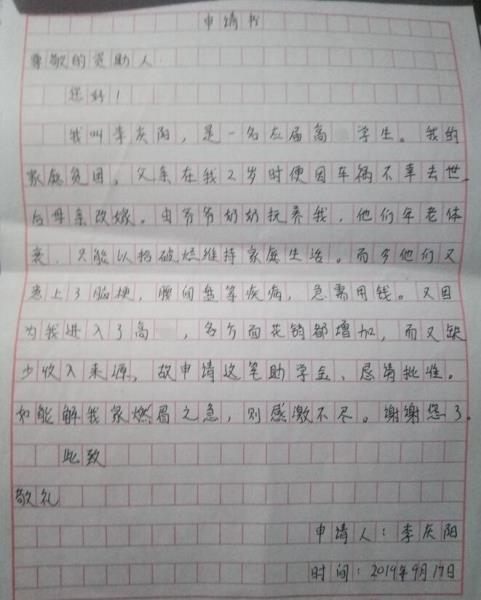 申请书
尊敬的资助人
您好！
我叫李庆阳，是一名应届高 学生。我的
家庭贫困，父亲在我2岁时便因车祸不幸去世，
后母亲改嫁。由爷爷奶奶抚养我，他们年老体
衰，只能以拾破烂维持家庭生活。而今他们又
患上了脑梗，腰间盘等疾病，急需用钱。又因
为我进入了高 ，各方面花销都增加，而又缺
少收入来源，故申请这笔助学金、恳请批准。
如能解我家燃眉之急，则感激不尽。谢谢您了。
此致
敬礼
申请人：李庆阳
时间：2019年9月17日